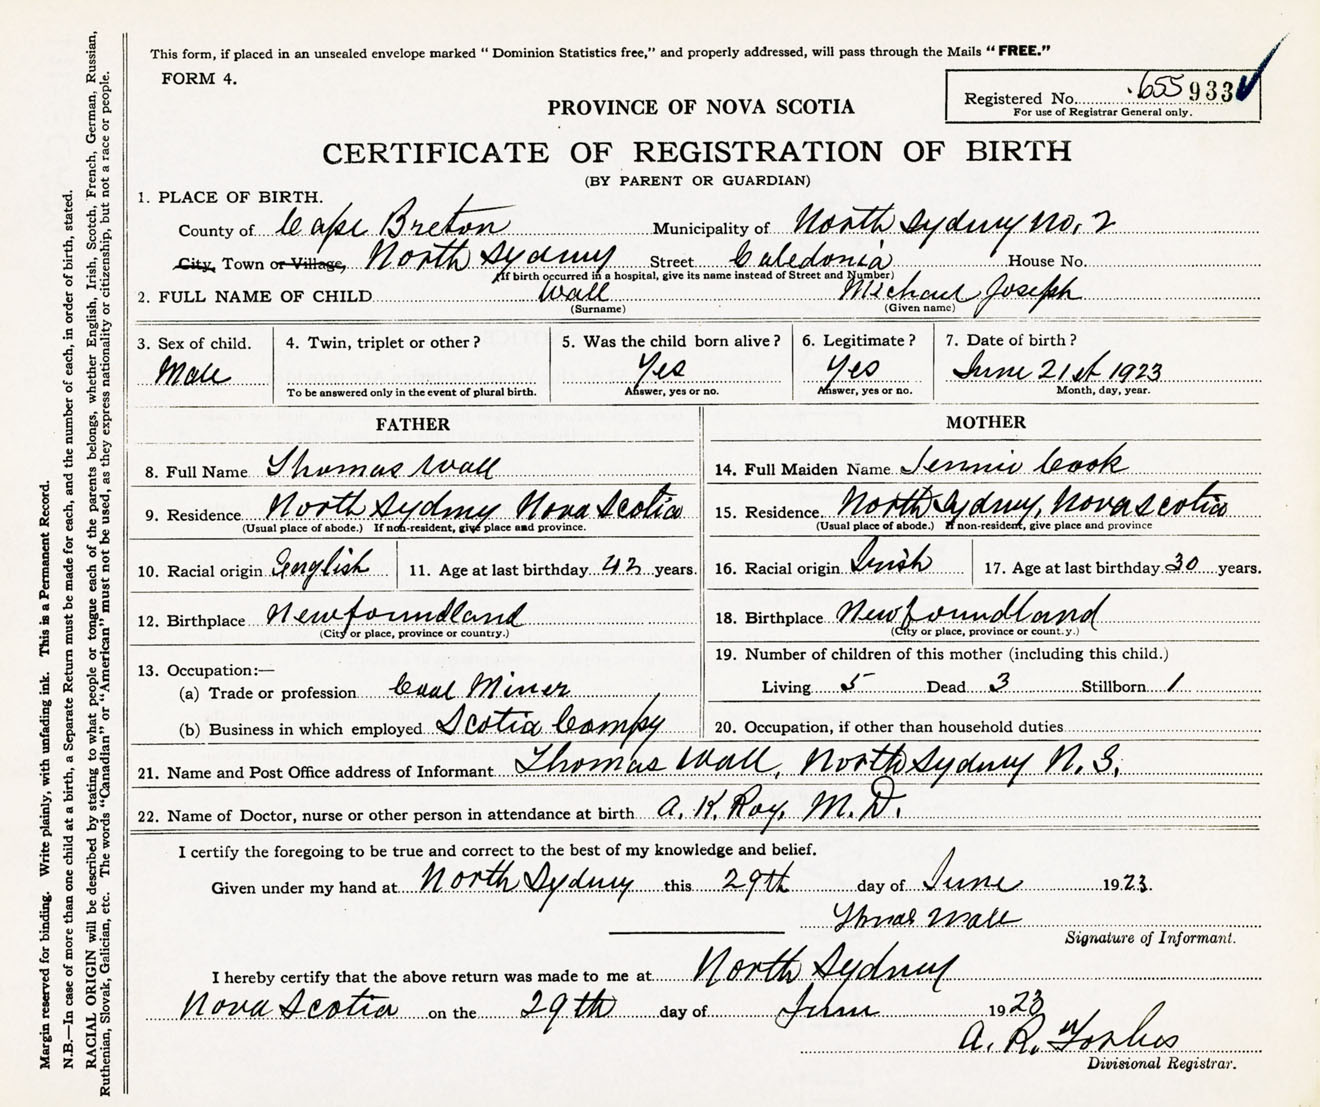 This form, if placed in an unsealed envelope marked “ Dominion Statistics free,” and properly addressed, will pass through the Mails “ FREE.”
FORM 4.
Registered No. 655 933
For use of Registrar General only.
PROVINCE OF NOVA SCOTIA
CERTIFICATE OF REGISTRATION OF BIRTH
(BY PARENT OR GUARDIAN)
1. PLACE OF BIRTH.
County of Cape Breton Municipality of North Sydney No. 2
City, Town or Village, North Sydney Street Caledonia House No.
(If birth occurred in a hospital, give its name instead of Street and Number)
2. FULL NAME OF CHILD Wall Michael Joseph
(Surname) (Given name)
3. Sex of child. 4. Twin, triplet or other ? 5. Was the child born alive ? 6. Legitimate ? 7. Date of birth ?
Male Yes Yes June 21st 1923
To be answered only in the event of plural birth. Answer, yes or no. Answer, yes or no. Month, day, year.
FATHER MOTHER
8. Full Name Thomas Wall 14. Full Maiden Name Jennie Cook
9. Residence North Sydney Nova Scotia 15. Residence. North Sydney, Nova Scotia
(Usual place of abode.) If non-resident, give place and province. (Usual place of abode.) If non-resident, give place and province
10. Racial origin English 11. Age at last birthday 42 years. 16. Racial origin Irish 17. Age at last birthday 30 years.
12. Birthplace Newfoundland 18. Birthplace Newfoundland
(City or place, province or country.) (City or place, province or count.y.)
13. Occupation:— 19. Number of children of this mother (including this child.)
(a) Trade or profession Coal Miner Living 5 Dead 3 Stillborn 1
(b) Business in which employed Scotia Compy 20. Occupation, if other than household duties
21. Name and Post Office address of Informant Thomas Wall, North Sydney N.S.
22. Name of Doctor, nurse or other person in attendance at birth A. K. Roy, M.D.
I certify the foregoing to be true and correct to the best of my knowledge and belief.
Given under my hand at North Sydney this 29th day of June 1923.
Thomas Wall
Signature of Informant.
I hereby certify that the above return was made to me at North Sydney
Nova Scotia on the 29th day of June 1923
A. R. Forbes
Divisional Registrar.
Margin reserved for binding. Write plainly, with unfading ink. This is a Permanent Record.
N.B.—In case of more than one child at a birth, a Separate Return must be made for each, and the number of each, in order of birth, stated.
RACIAL ORIGIN will be described by stating to what people or tongue each of the parents belongs, whether English, Irish, Scotch, French, German, Russian,
Ruthenian, Slovak, Galician, etc. The words “Canadian” or “American” must not be used, as they express nationality or citizenship, but not a race or people.